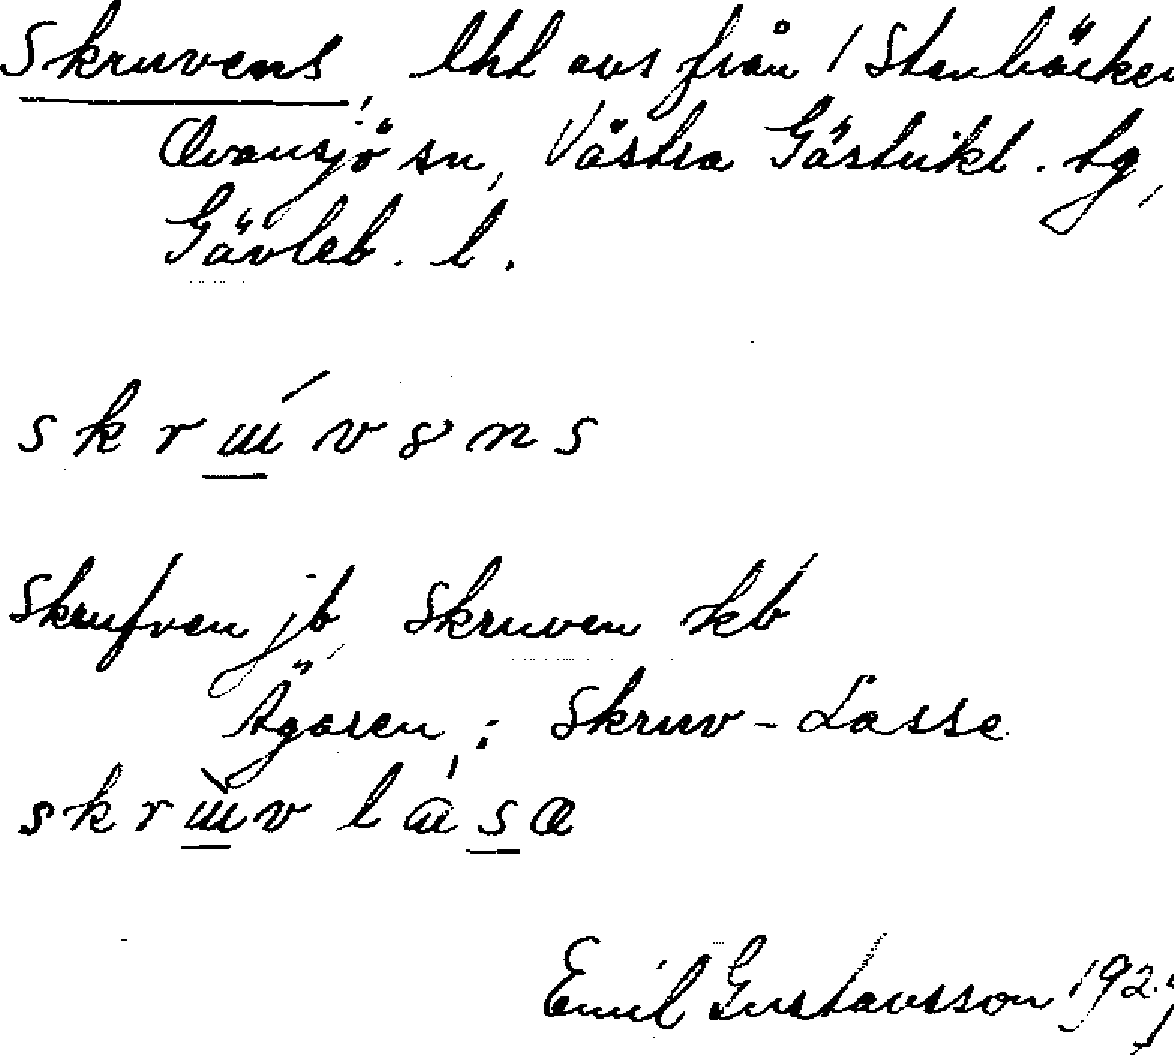 Skruvens, lht avs från 1 Stenbäcken
Ovansjö sn, Västra Gästrikl. tg,
Gävleb. l.
skrɯ́vəns
Skrufven jb, Skruven kb
Ägaren: Skruv-Lasse
skrɯ̀v
Emil Gustavsson